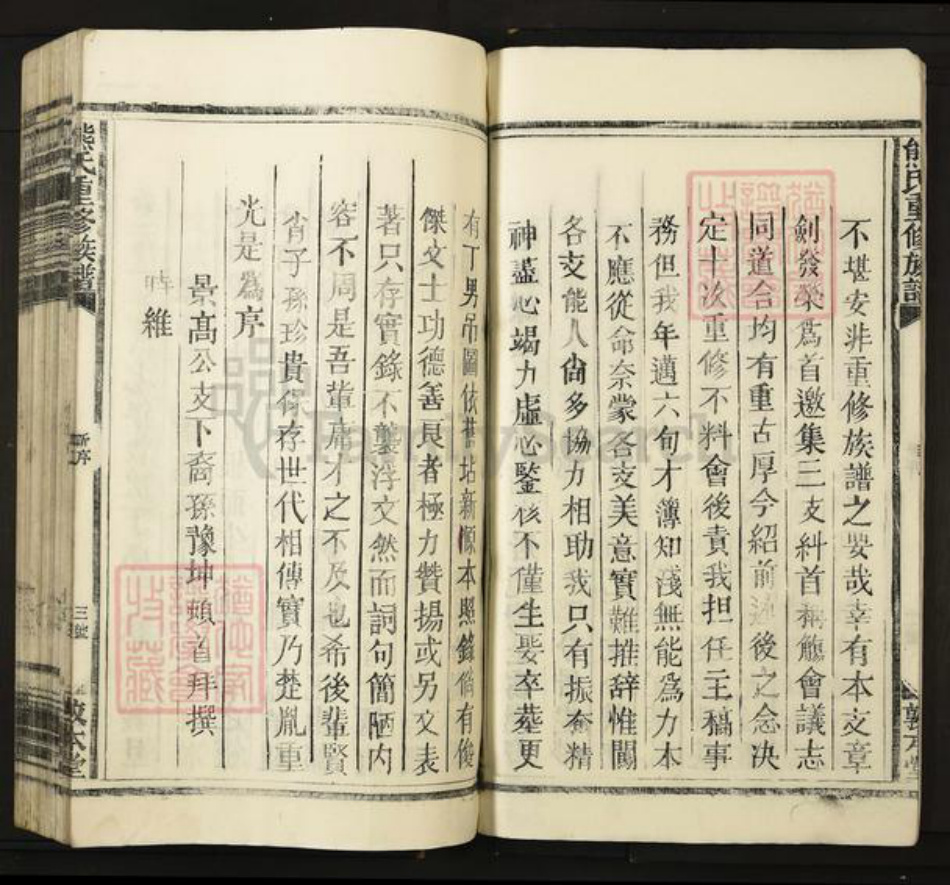 熊氏重修族譜
敦本堂
不堪安非重修族譜之要哉幸有本支章
劍發榮為首邀集三支糾首稱觴會議志
同道合均有重古厚今紹前述後之念决
定十次重修不料會後責我担任主稿事
務但我年邁六旬才薄知淺無能為力本
不應從命奈蒙各支美意實難推辞惟闔
各支能人尙多協力相助我只有振奮精
神盡心竭力虛心鑒核不僅生娶卒塟更
有丁男吊圖依世坫新源本照錄倘有俊
傑文士功德善良者極力贊揚或另文表
著只存實錄不襲浮文然而詞句簡陋内
容不周是吾輩庸才之不及也希後輩賢
肖子孫珍貴保存世代相傳實乃楚胤重
光是為序
景高公支下裔孫豫坤頓首拜撰
時維
熊氏重修族譜
新序
三號
敦本堂
FamilySearch